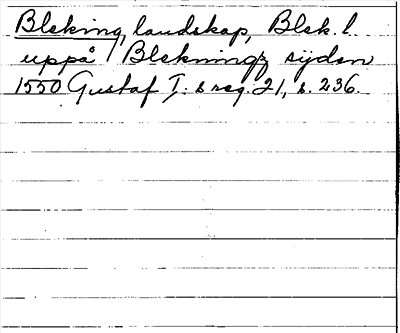 Bleking, landskap, Blek. l.
uppå Blekningz sijdon
1550 Gustaf I: s reg. 21, s. 236.